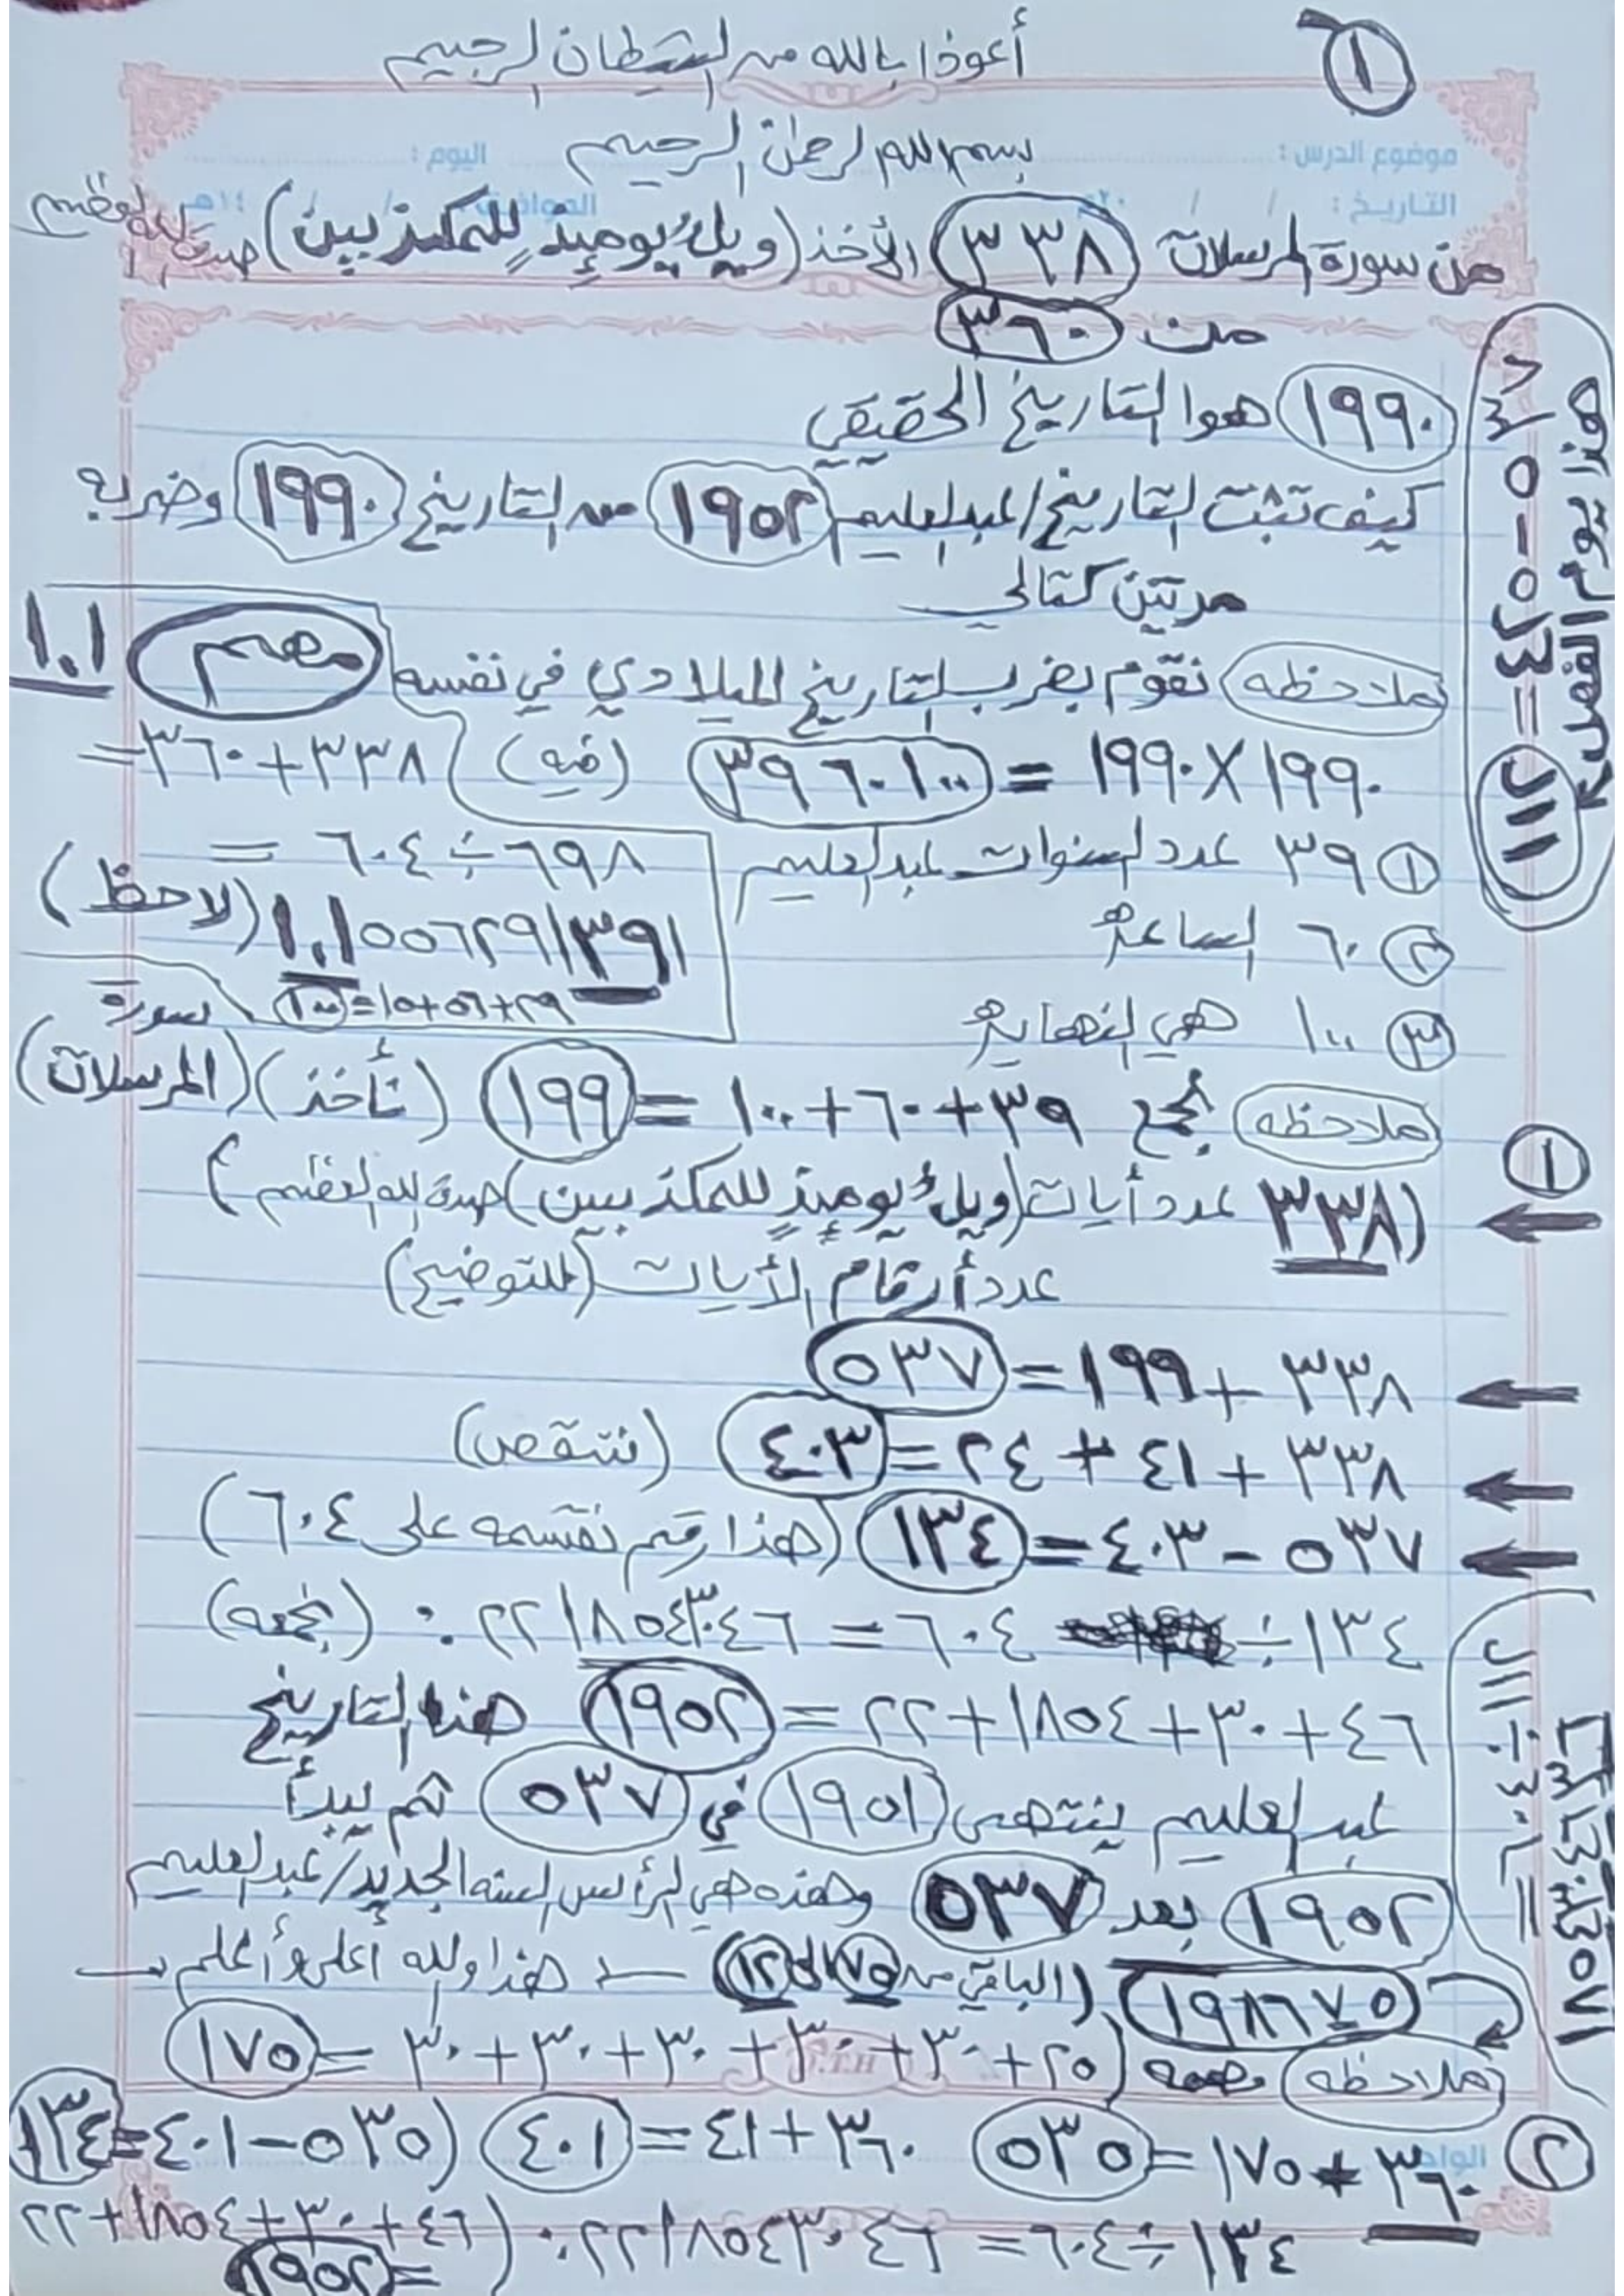 ١
أعوذ بالله من الشيطان الرجيم
بسم الله الرحمن الرحيم
موضوع الدرس : اليوم :
التاريخ : / / ٢٠م الموافق / / ١٤هـ
من سورة المرسلات ٣٣٨ الأخذ (ويل يومئذ للمكذبين) صدق الله العظيم
من ٣٦٠
١٩٩٠ هوا التاريخ الحقيقي
كيف تثبت التاريخ/عبدالعليم ١٩٥٢ من التاريخ ١٩٩٠ وضربه
مرتين كتالي
ملاحظه نقوم بضرب التاريخ الميلادي في نفسه مهم ١.١
١٩٩٠ × ١٩٩٠ = ٣٩٦٠١٠٠ (فيه) ٣٣٨+٣٦٠=
١ ٣٩ عدد السنوات عبدالعليم
٦٩٨ ÷ ٦٠٤ =
٢ ٦٠ الساعة
١.١٥٥٦٢٩١٣٩١ (لاحظ)
٢٩+٥٦+١٥=١٠٠
٣ ١٠٠ هي النهاية
ملاحظه نجمع ٣٩+٦٠+١٠٠ = ١٩٩ (نأخذ) (سورة المرسلات)
١
(٣٣٨ عدد أيات (ويل يومئذ للمكذبين) صدق الله العظيم)
عدد أرقام الأيات (للتوضيح)
٣٣٨ + ١٩٩ = ٥٣٧
٣٣٨ + ٤١ + ٢٤ = ٤٠٣ (ننقص)
٥٣٧ - ٤٠٣ = ١٣٤ (هذا رقم نقسمه على ٦٠٤)
١٣٤ ÷ ٦٠٤ = ٢٢١٨٥٤٣٠٤٦. (نجمعه)
٤٦+٣٠+١٨٥٤+٢٢ = ١٩٥٢ هذا التاريخ
عبدالعليم ينتهي ١٩٥١ في ٥٣٧ ثم يبدأ
١٩٥٢ بعد ٥٣٧ وهذه هي الرأس السنه الجديد/عبدالعليم
١٩٨٦٧٥ (الباقي من ٧٥ ١٢) هذا والله أعلى وأعلم
ملاحظه مهمه (٢٥+٣٠+٣٠+٣٠+٣٠+٣٠ = ١٧٥
٢
٣٦٠ + ١٧٥ = ٥٣٥ ٣٦٠+٤١ = ٤٠١ (٥٣٥-٤٠١=١٣٤
١٣٤ ÷ ٦٠٤ = ٢٢١٨٥٤٣٠٤٦. (٤٦+٣٠+١٨٥٤+٢٢
=١٩٥٢
هذا يوم الفصل